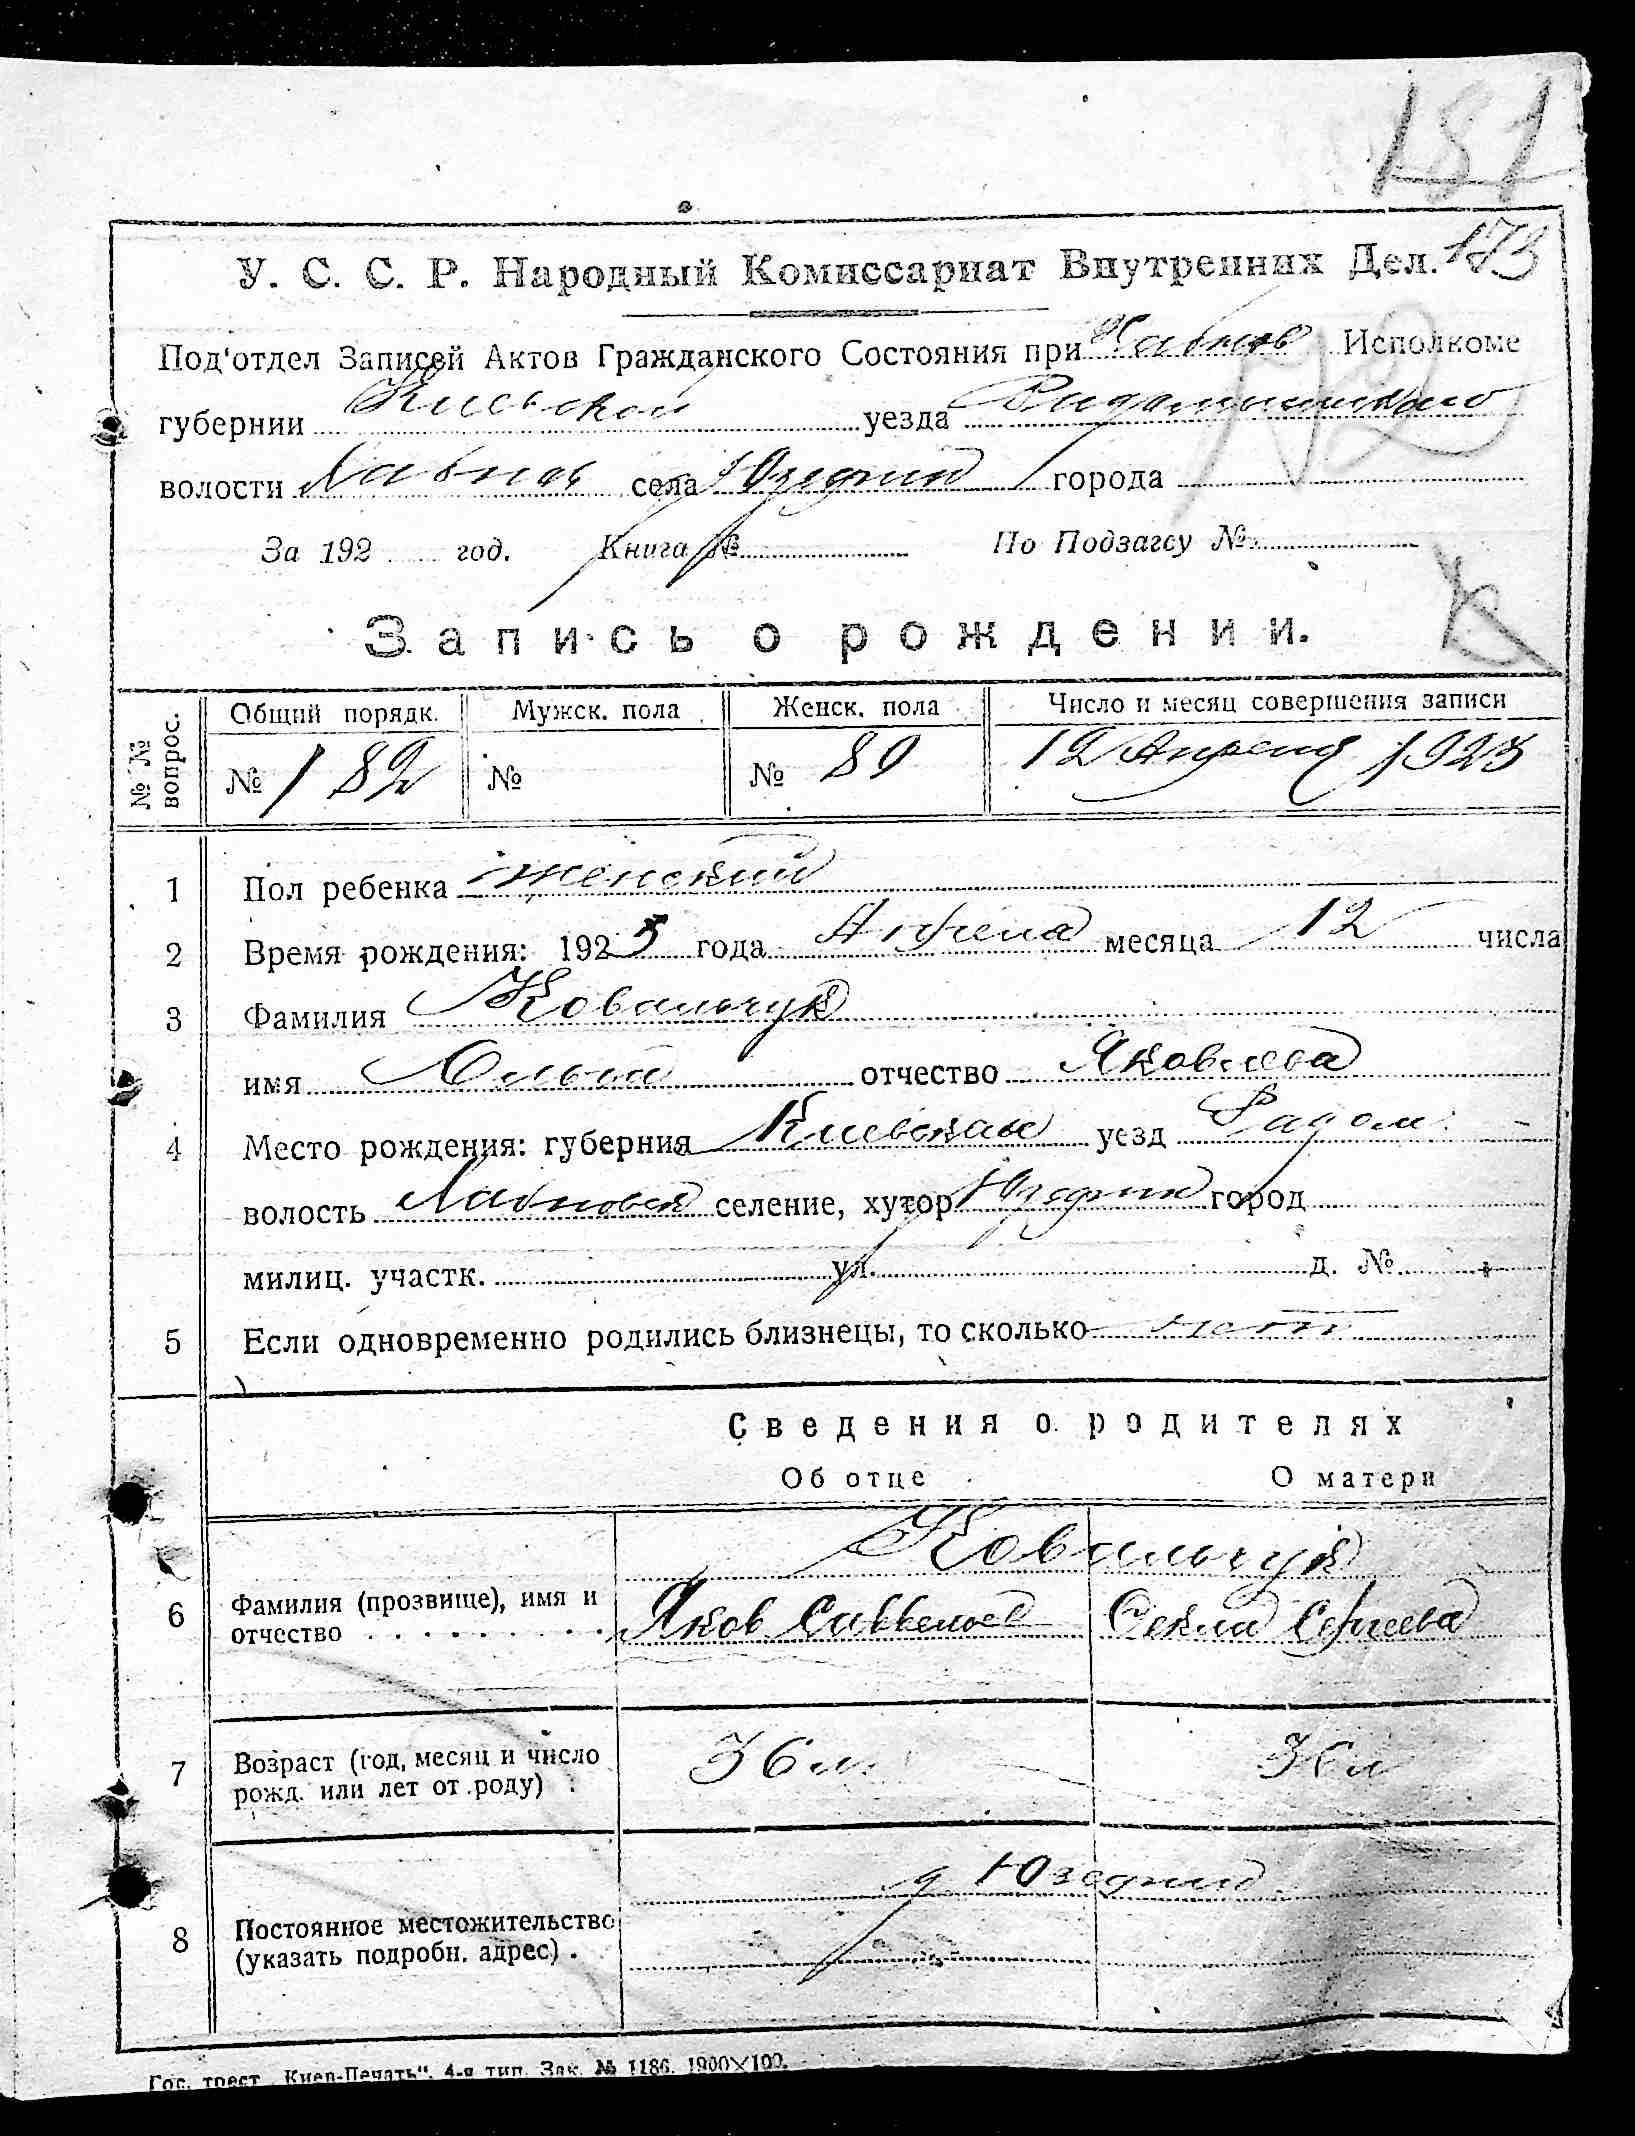 181
У. С. С. Р. Народный Комиссариат Внутренних Дел. 173
Под'отдел Записей Актов Гражданского Состояния при Хабнов Исполкоме
губернии Киевской уезда Радомышльского
волости Хабнов села города
За 192 год. Книга № По Подзагсу №
Запись о рождении.
№ № вопрос.
Общий порядк. Мужск. пола Женск. пола Число и месяц совершения записи
№ 182 № № 89 12 Апреля 1923
1 Пол ребенка женский
2 Время рождения: 1923 года Апреля месяца 12 числа
3 Фамилия Ковальчук
имя Ольга отчество Яковлева
4 Место рождения: губерния Киевская уезд Радом.
волость Хабновск селение, хутор город
милиц. участк. ул. д. №
5 Если одновременно родились близнецы, то сколько нет
Сведения о родителях
Об отце О матери
Ковальчук
6 Фамилия (прозвище), имя и
отчество . . . . . . . . . Яков Савельев Фекла Сергеева
7 Возраст (год, месяц и число
рожд. или лет от роду) . 36 л. 36 л
8 Постоянное местожительство
(указать подробн. адрес) .
Гос. трест „Киев-Печать“. 4-я тип. Зак. № 1186. 1900×100.